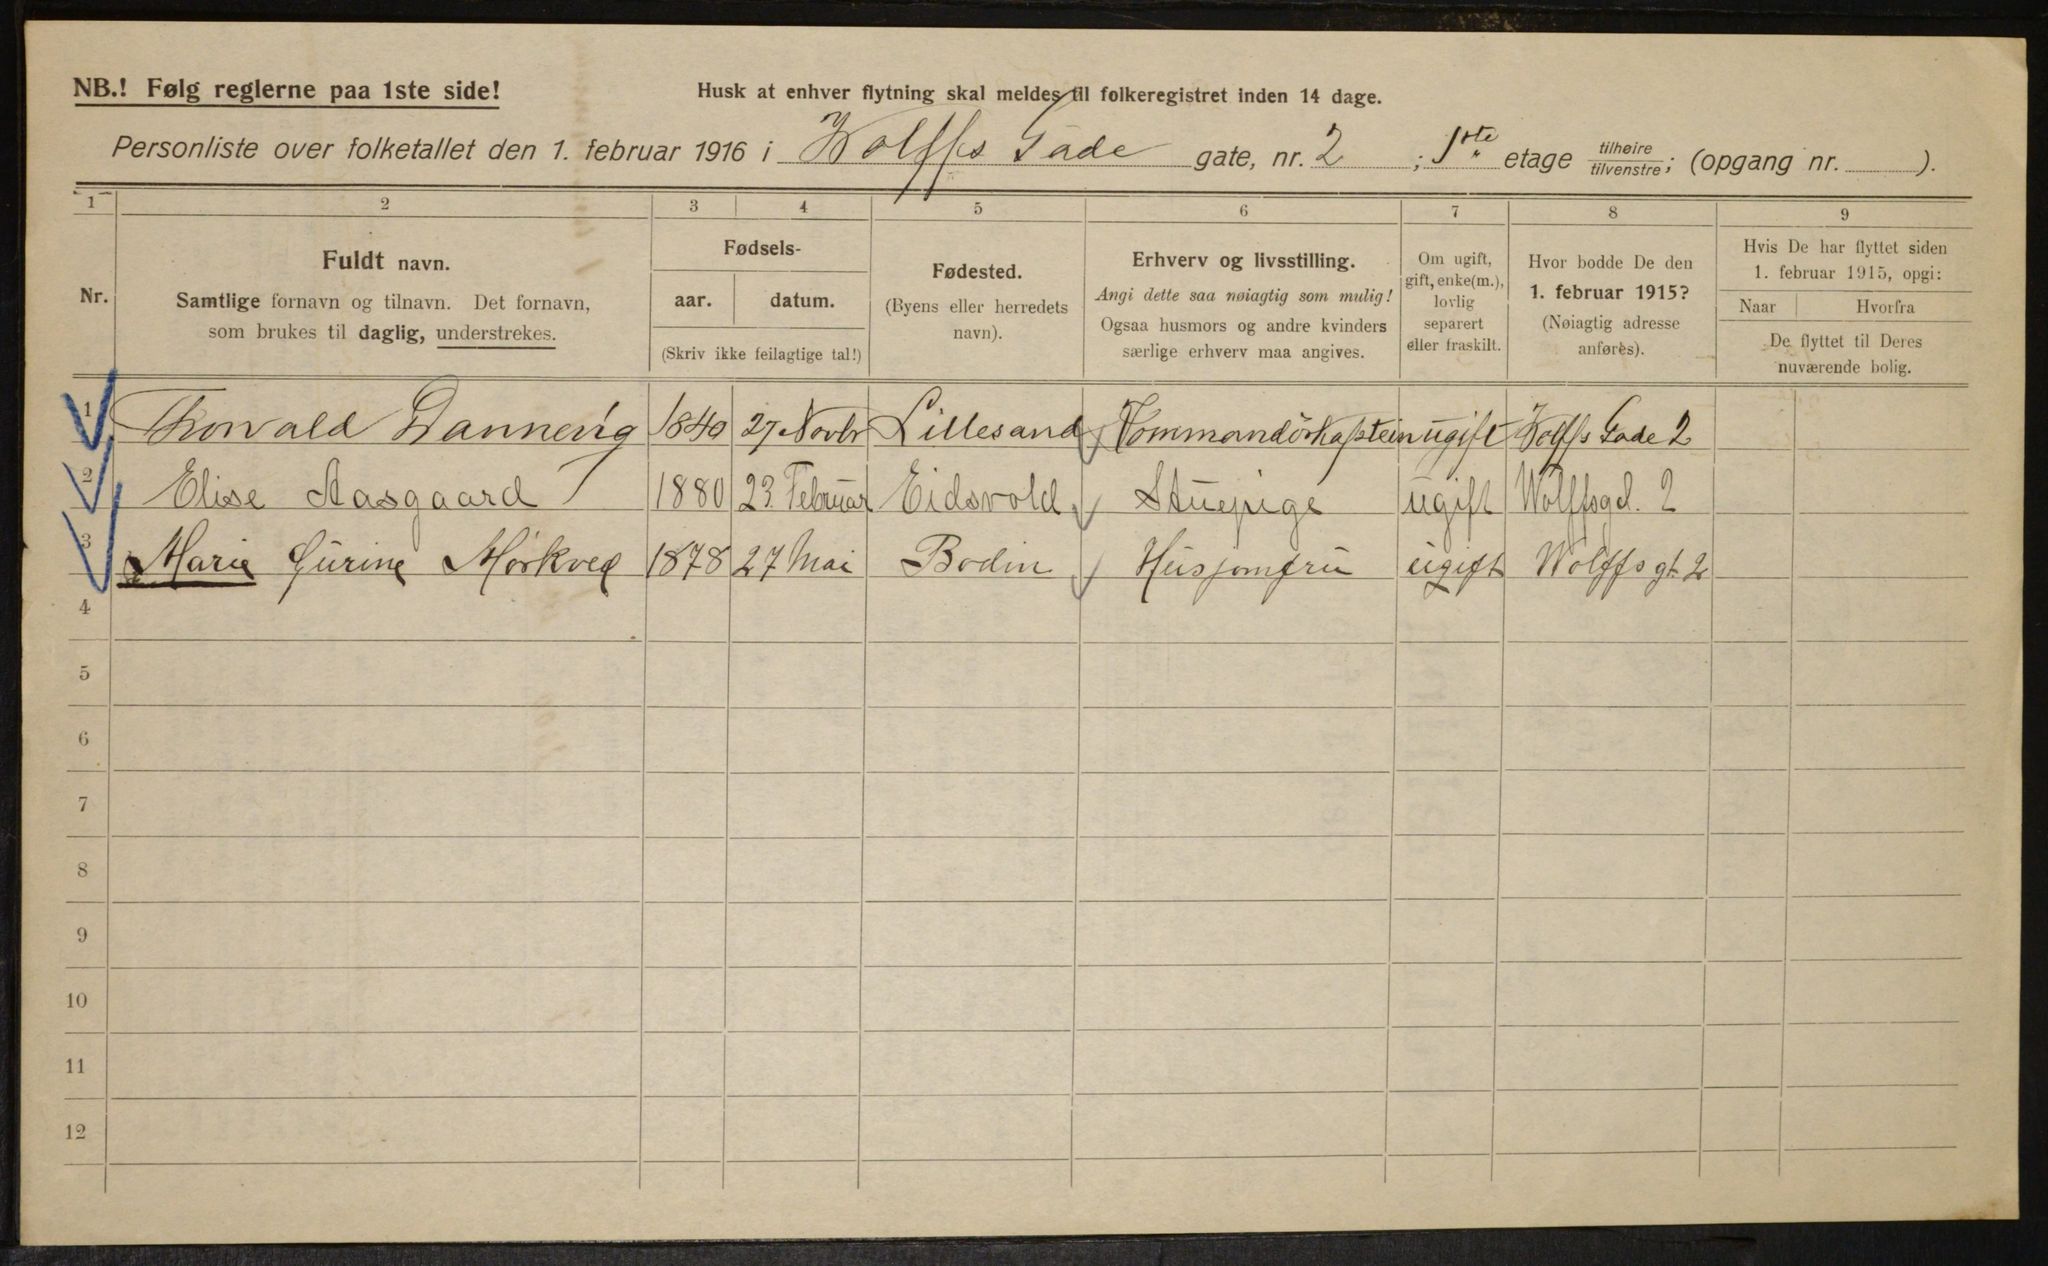 NB.! Følg reglerne paa 1ste side!
Husk at enhver flytning skal meldes til folkeregistret inden 14 dage.
Personliste over folketallet den 1. februar 1916 i Wolffs Gade gate, nr. 2; 1ste etage tilhøire/tilvenstre; (opgang nr. ).
1 2 3 4 5 6 7 8 9
Nr.
Fuldt navn.
Samtlige fornavn og tilnavn. Det fornavn,
som brukes til daglig, understrekes.
Fødsels-
aar. datum.
(Skriv ikke feilagtige tal!)
Fødested.
(Byens eller herredets
navn).
Erhverv og livsstilling.
Angi dette saa nøiagtig som mulig!
Ogsaa husmors og andre kvinders
særlige erhverv maa angives.
Om ugift,
gift, enke(m.),
lovlig
separert
eller fraskilt.
Hvor bodde De den
1. februar 1915?
(Nøiagtig adresse
anføres).
Hvis De har flyttet siden
1. februar 1915, opgi:
Naar Hvorfra
De flyttet til Deres
nuværende bolig.
1 Thorvald Dannevig 1840 27 Novbr Lillesand Kommandörkaptein ugift Wolffs Gade 2
2 Elise Aasgaard 1880 23. Februar Eidsvold Stuepige ugift Wolffsgd. 2
3 Marie Gurine Mørkved 1878 27 Mai Bodin Husjomfru ugift Wolffs gt. 2
4
5
6
7
8
9
10
11
12